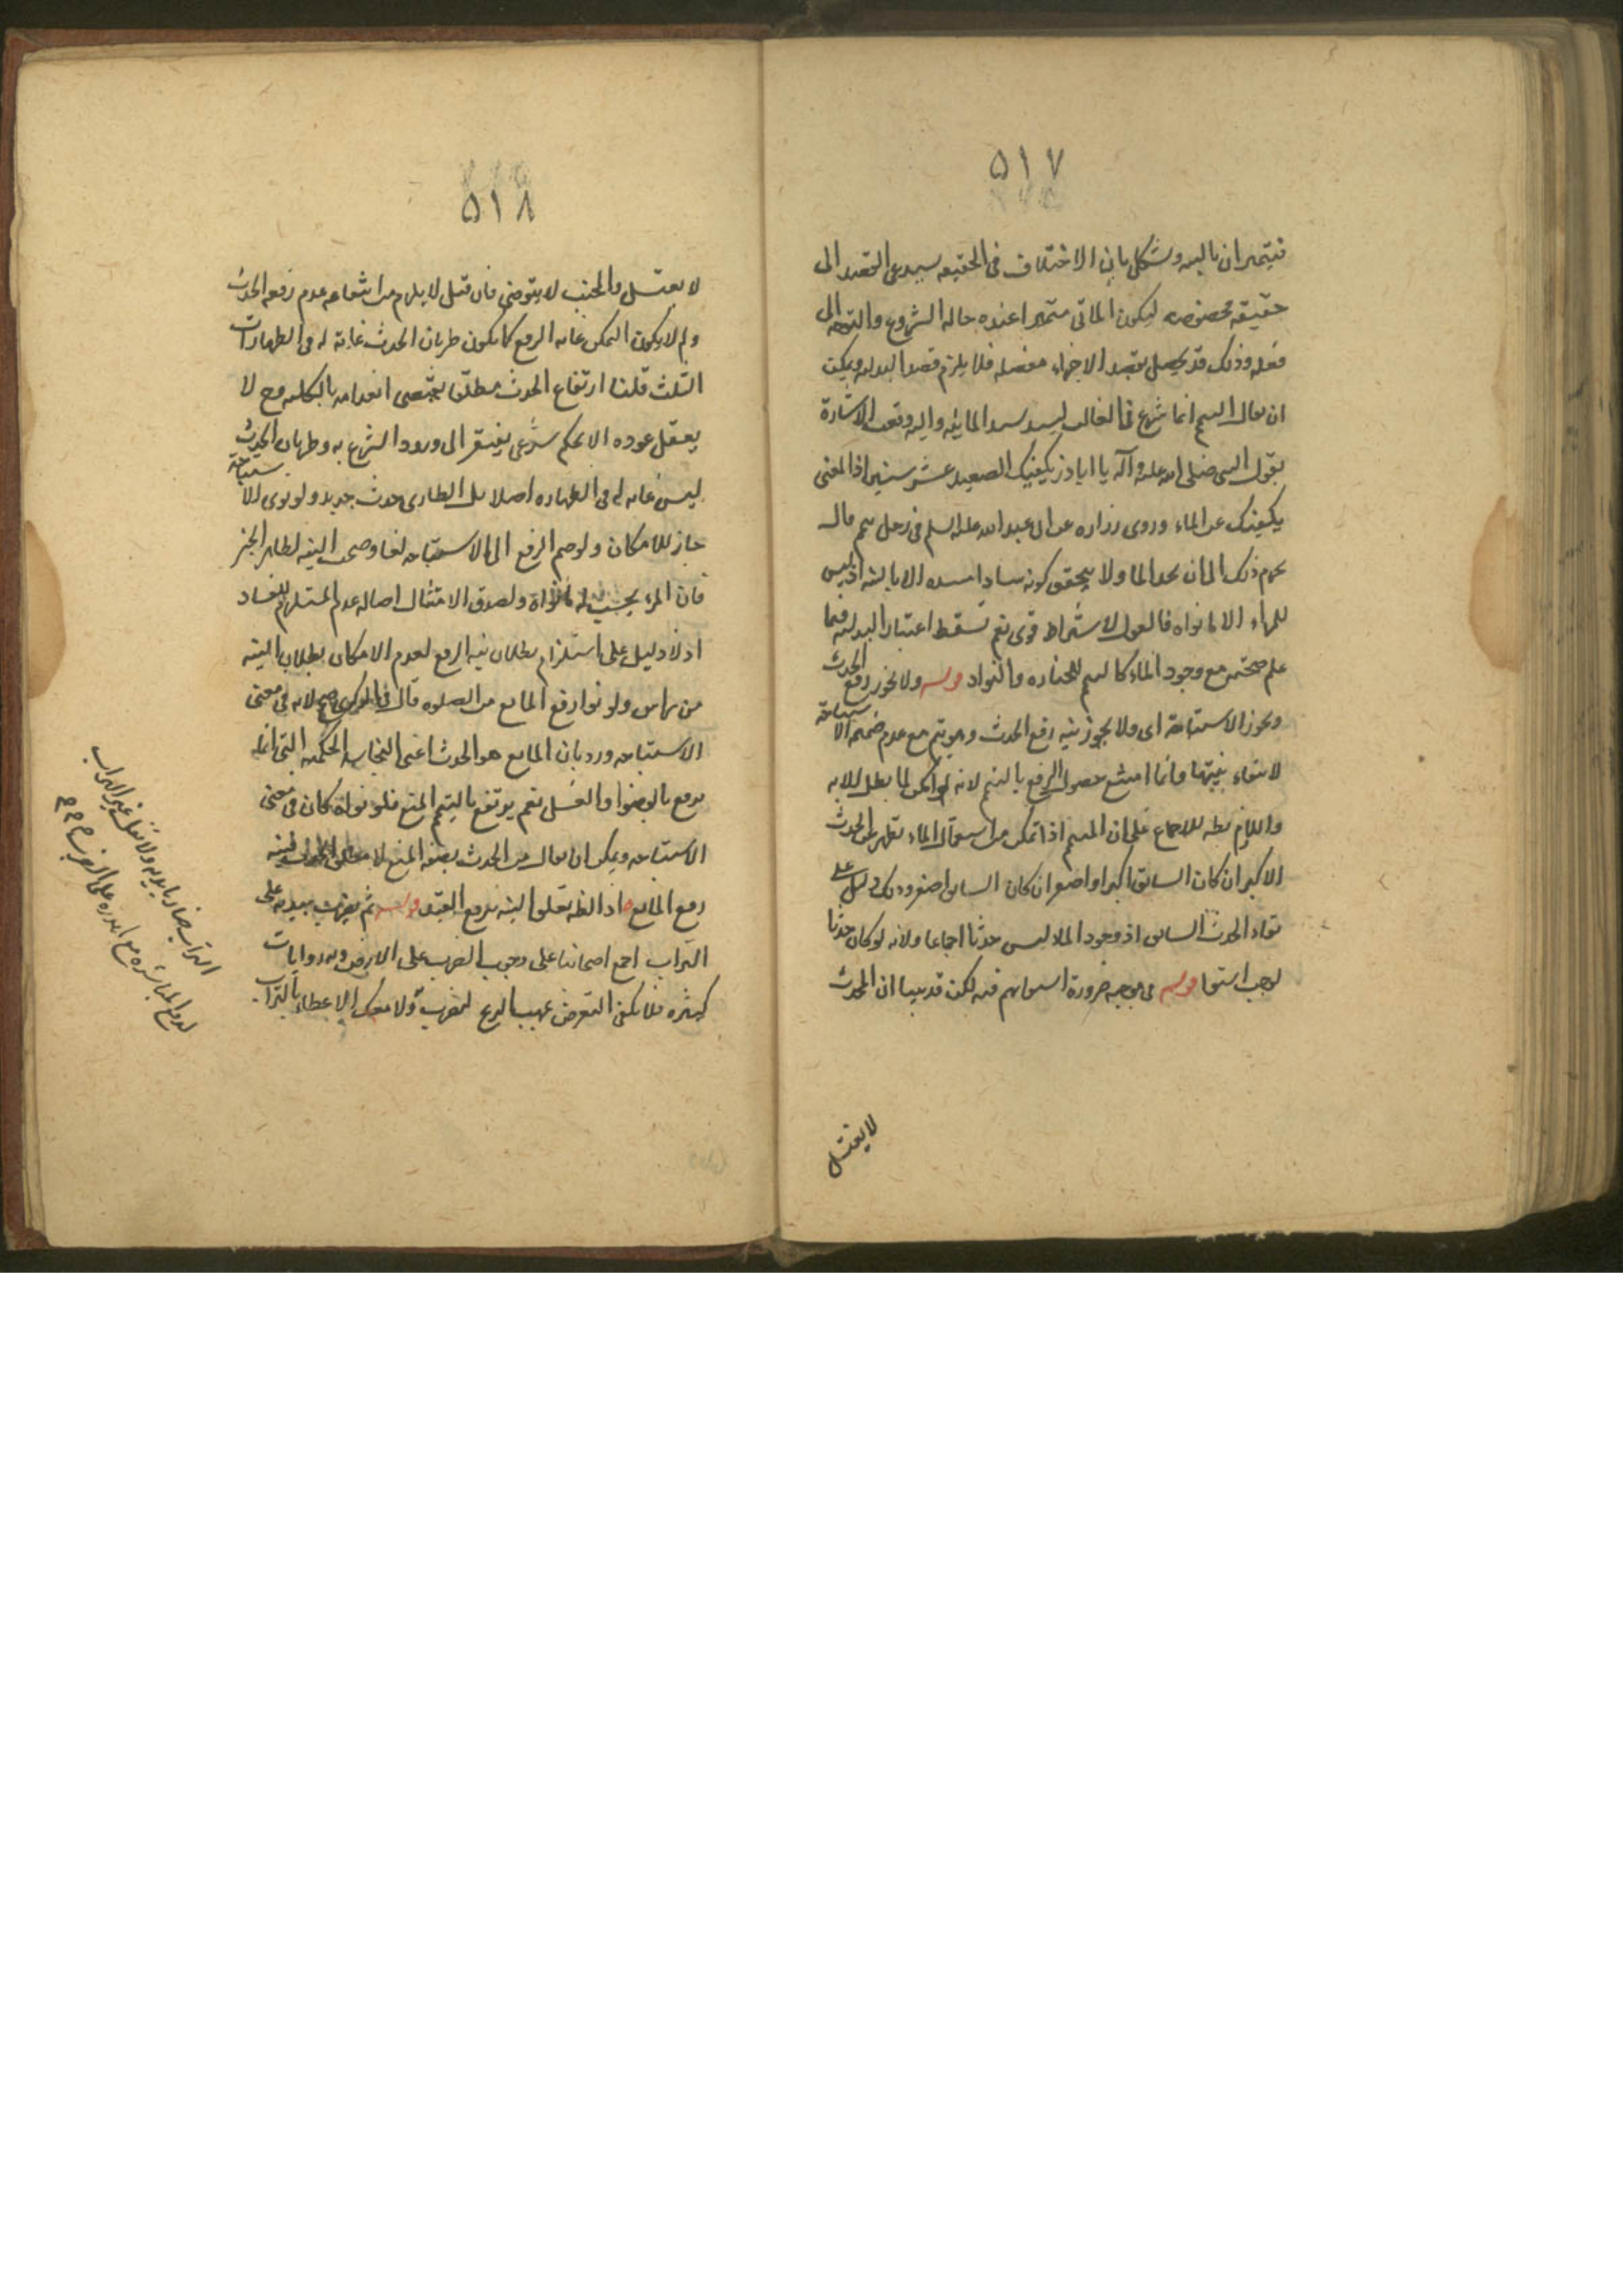 ٥١٧
فيتميزان بالنيه ويشكل بان الاختلاف فى الحقيقه يستدعى القصد الى
حقيقه مخصوصه ليكون الماتى متميزا عنده حاله الشروع والتوجه الى
فعله وذلك قد يحصل بقصد الاجزاء مفصله فلا يلزم قصد البدليه ويمكن
ان يقال التيمم انما شرع فى الغالب ليسد مسد المائيه واليه وقعت الاشارة
بقول النبى صلى الله عليه وآله يا اباذر يكفيك الصعيد عشر سنين اذ المعنى
يكفيك عن الماء وروى زراره عن ابى عبد الله عليه السلم فى رجل تيمم قال
يجزيه ذلك الى ان يجد الما ولا يتحقق كونه سادا مسده الا بالنيه اذ ليس
للمرء الا ما نواه فالقول بالاشتراط قوى نعم تسقط اعتبار البدليه فيما
علم صحته مع وجود الماء كالتيمم للجنازه والنوم قوله ولا يجوز رفع الحدث
ويجوز الاستباحة اى ولا يجوز نية رفع الحدث وهو يتم مع عدم ضميمه الاستباحة
لانتفاء نيتها وانما امتنع حصول الرفع بالتيمم لانه لو امكن لما بطل الا به
واللازم بط للاجماع على ان المتيمم اذا تمكن من استعمال الماء تطهر عن الحدث
الاكبر ان كان السابق اكبر او اصغر ان كان السابق اصغر وذلك دليل على
بقاء الحدث السابق اذ وجود الما ليس حدثا اجماعا ولانه لو كان حدثا
لوجب استوا قوله فى موجبه ضرورة استوائهم فيه لكن قد بينا ان المحدث
لا يغتسل
٥١٨
لا يغتسل والجنب لا يتوضى فان قيل لا يلزم من انتفائه عدم رفعه الحدث
ولم لا يكون التمكن غايه الرفع كما يكون طريان الحدث غاية له فى الطهارات
الثلث قلنا ارتفاع الحدث مطلقا يقتضى انعدامه بالكليه وح لا
يعقل عوده الا بحكم شرعى يفتقر الى ورود الشرع به وطريان الحدث
ليس غايه له فى الطهاره اصلا بل الطارى حدث جديد ولو نوى الاستباحة
جاز للامكان ولو ضم الرفع الى الاستباحه لغا وصحت النيه لظاهر الخبر
فان المرء يحسب له ما نواه ولصدق الامتثال اصاله عدم المستلزم للفساد
اذ لا دليل على استلزام بطلان نيه الرفع لعدم الامكان بطلان النيه
من راس ولو نوا رفع المانع من الصلوه قال فى الذكرى صح لانه فى معنى
الاستباحه ورد بان المانع هو الحدث اعنى النجاسه الحكميه التى انما
يرفع بالوضوا والغسل نعم يرتفع بالتيمم المنع فلو نواه كان فى معنى
الاستباحه ويمكن ان يقال من الحدث بصفه المنع لا مطلق الحدث فنيه
رفع المانع اذ الظ تعلق النيه برفع القيد قوله ثم يضرب بيديه على
التراب اجمع اصحابنا على وجوب الضرب على الارض وبه روايات
كثيره فلا يكفى التعرض لمهب الريح لم يضرب ولا معك الاعضاء بالتراب